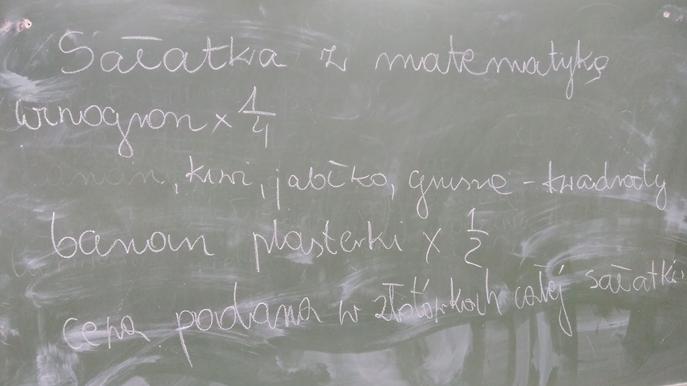 Sałatka z matematyką
winogron × 1/4
banan, kiwi, jabłko, gruszę - kwadraty
banan plasterki × 1/2
cena podana w złotówkach całej sałatki.